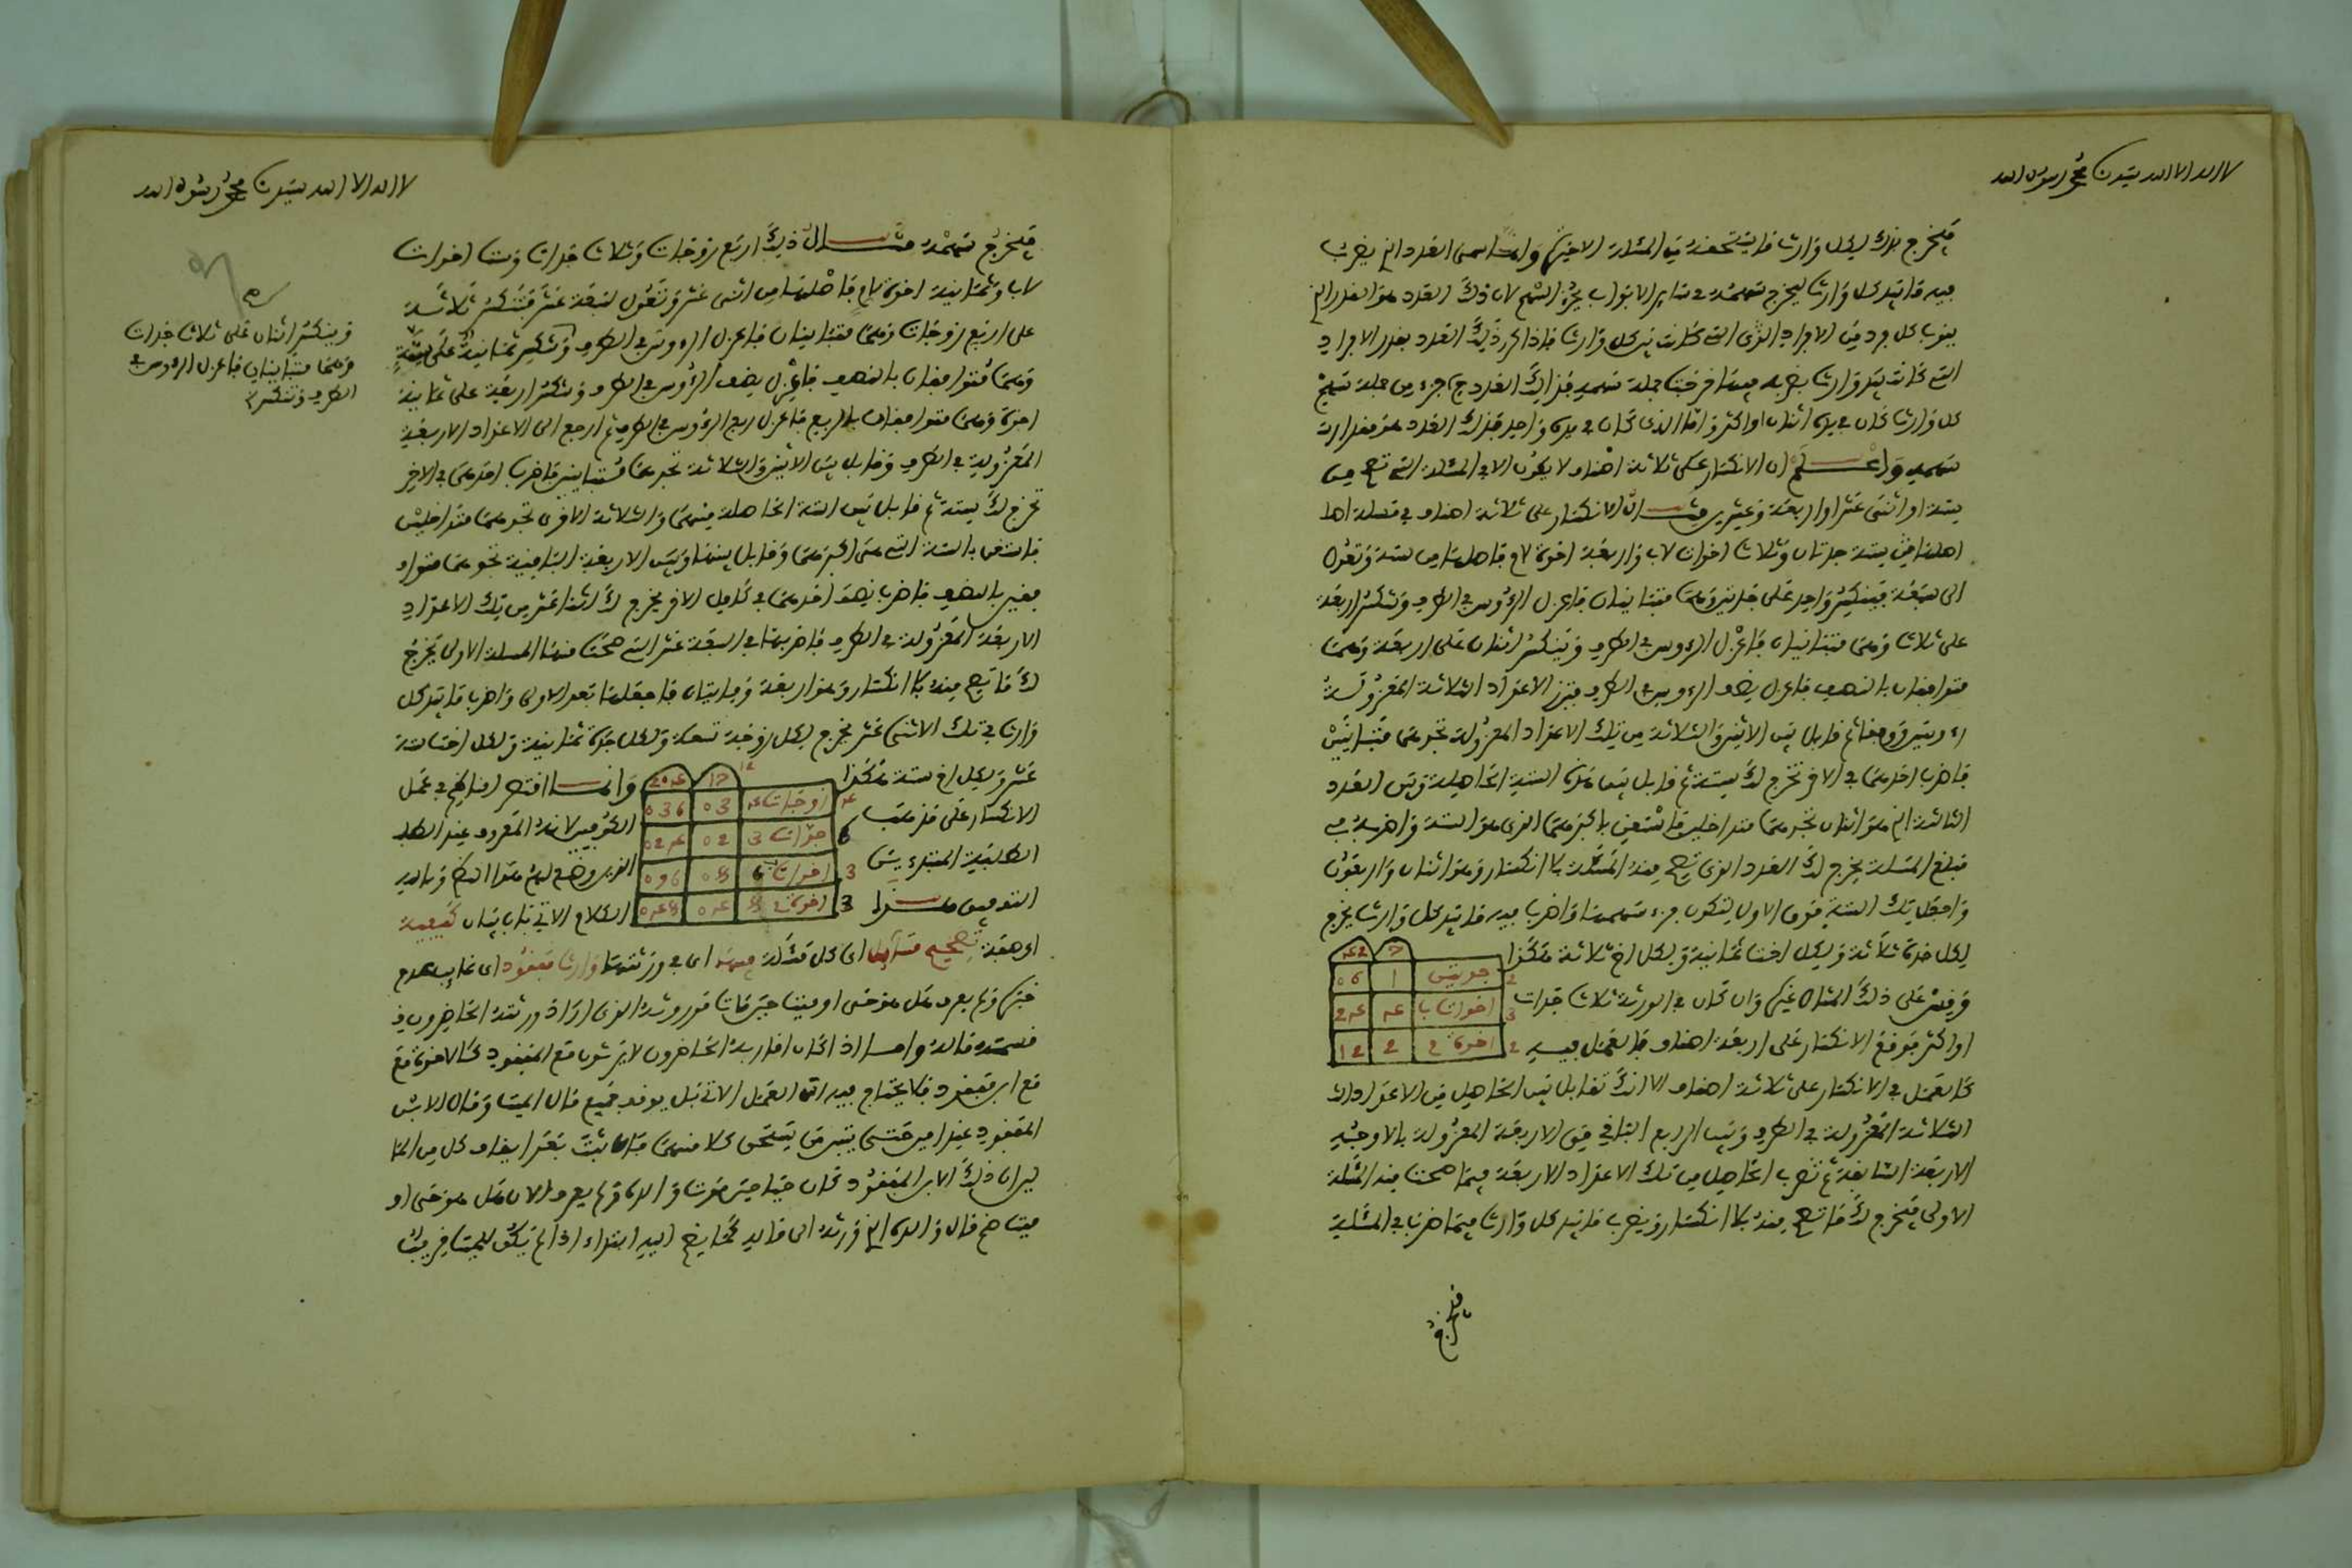 لا اله الا الله سيدنا محمد رسول الله
فيخرج لك لكل وارث ما يستحقه في المسئلة الاخيرة وانما سمي العدد الذي يضرب
فيه ما بيد كل وارث ليخرج سهمه في سائر الابواب بجزء السهم لان ذلك العدد هو القدر الذي
ينوب كل فرد من الافراد الذي التي كانت بيد كل وارث فاذا كرر ذلك العدد بقدر الافراد
التي كانت بيد وارث بضربه فيه خرجت جملة سهمه فذلك العدد جزء من جملة سهم
كل وارث كان في يده اثنان او اكثر واما الذي كان في يده واحد فذلك العدد هو مقدار
سهمه واعلم ان الانكسار على ثلاثة اصناف لا يكون الا في المسئلة التي تصح من
ستة او اثني عشر او اربعة وعشرين مثال الانكسار على ثلاثة اصناف في مسئلة اصل
اصلها من ستة جدتان وثلاث اخوات لاب واربعة اخوة لام فاصلها من ستة وتعول
الى سبعة فينكسر واحد على جدتين وهما متباينان فاعزل الرءوس في الطرف وتنكسر اربعة
على ثلاث وهما متباينان فاعزل الرءوس في الطرف وينكسر اثنان على اربعة وهما
متوافقان بالنصف فاعزل نصف الرءوس في الطرف فتزن الاعداد الثلاثة المعزولة
رءوسين ووفقا ثم قابل بين الاثنين والثلاثة من تلك الاعداد المعزولة تجدهما متباينين
فاضرب احدهما في الاخر تخرج لك ستة ثم قابل بين هذه الستة الحاصلة وبين العدد
الثالث الذي هو اثنان تجدهما متداخلين فاستغن باكبرهما الذي هو الستة واضربه في
مبلغ المسئلة يخرج لك العدد الذي تصح منه المسئلة بلا انكسار وهو اثنان واربعون
واجعل تلك الستة فوق الاولى لتكون جزء سهمها واضرب فيه ما بيد كل وارث يخرج
لكل جدة ثلاثة ولكل اخت ثمانية ولكل اخ ثلاثة هكذا
7 42
2 جدتين 1 06
3 اخوات ب 4 24
2 اخوة م 2 12
وقس على ذلك المثال غيره وان كان في الورثة ثلاث جدات
او اكثر فوقع الانكسار على اربعة اصناف فالعمل فيه
كالعمل في الانكسار على ثلاثة اصناف الا انك تقابل بين الحاصل من الاعداد
الثلاثة المعزولة في الطرف وبين الرابع الباقي من الاربعة المعزولة بالاوجه
الاربعة السابقة ثم تضرب الحاصل من تلك الاعداد الاربعة فيما صحت منه المسئلة
الاولى فيخرج لك ما تصح منه بلا انكسار ويضرب ما بيد كل وارث فيما ضربت في المسئلة
فيخرج
لا اله الا الله سيدنا محمد رسول الله
فيخرج سهمه مثال ذلك اربع زوجات وثلاث جدات وست اخوات
لاب وثمانية اخوة لام فاصلها من اثني عشر وتعول لسبعة عشر فتنكسر ثلاثة
على اربع زوجات وهما متباينان فاعزل الرءوس في الطرف وتنكسر ثمانية على ستة
وهما متوافقان بالنصف فاعزل نصف الرءوس في الطرف وتنكسر اربعة على ثمانية
اخوة وهما متوافقان بالربع فاعزل ربع الرءوس في الطرف ثم ارجع الى الاعداد الاربعة
المعزولة في الطرف وقابل بين الاثنين والثلاثة تجدهما متباينين فاضرب احدهما في الاخر
تخرج لك ستة ثم قابل بين الستة الحاصلة منهما والثلاثة الاخرى تجدهما متداخلين
فاستغن بالستة التي هي اكبرهما وقابل بينها وبين الاربعة الباقية تجدهما متوا
فقين بالنصف فاضرب نصف احدهما في كامل الاخر يخرج لك اثنا عشر من تلك الاعداد
الاربعة المعزولة في الطرف فاضربها في السبعة عشر التي صحت منها المسئلة الاولى يخرج
لك ما تصح منه بلا انكسار وهو اربعة ومايتان فاجعلها بعد الاولى واضرب ما بيد كل
وارث في تلك الاثني عشر يخرج لكل زوجة تسعة ولكل جدة ثمانية ولكل اخت ستة
عشر ولكل اخ ستة هكذا
12
17 204
4 زوجات 4 03 036
6 جدات 3 02 024
3 اخوات 6 08 096
3 اخوة م 8 04 048
وانما اقتصر المصنف في عمل
الانكسار على مذهب
الكوفيين لانه المعروف عند الطلبة
الطلبة المبتدءين
الذين وضع لهم هذا النظم وبالله
التوفيق هذا
الكلام الاتي باب بيان كيفية
او صفة تصحيح مسايل اي كل مسئلة فيها اي في ورثتها وارث مفقود اي غايب عدم
خبره ولم يعرف هل هو حي او ميت حين مات موروثه الذي اراد ورثته الحاضرون
قسمة ماله واما اذا كان اقاربه الحاضرون لا يرثون مع المفقود كالاخوة مع
مع ابن مفقود فلا يحتاج فيه الى العمل الاتي بل يوقف جميع مال الميت ومال الابن
المفقود عند امين حتى يتبين من يستحق كلا منهما فان ثبت بعد ايقاف كل من المال
لين ان ذلك الابن المفقود كان حيا حين موت والده ولم يعرف الان هل هو حي او
ميت ضم مال والده الذي ورثه الى ماله كما يضم اليه ابتداء اذا لم يكن للميت قريب
وينكسر اثنان على ثلاث جدات
وهما متباينان فاعزل الرءوس في
الطرف وتنكسر
صح